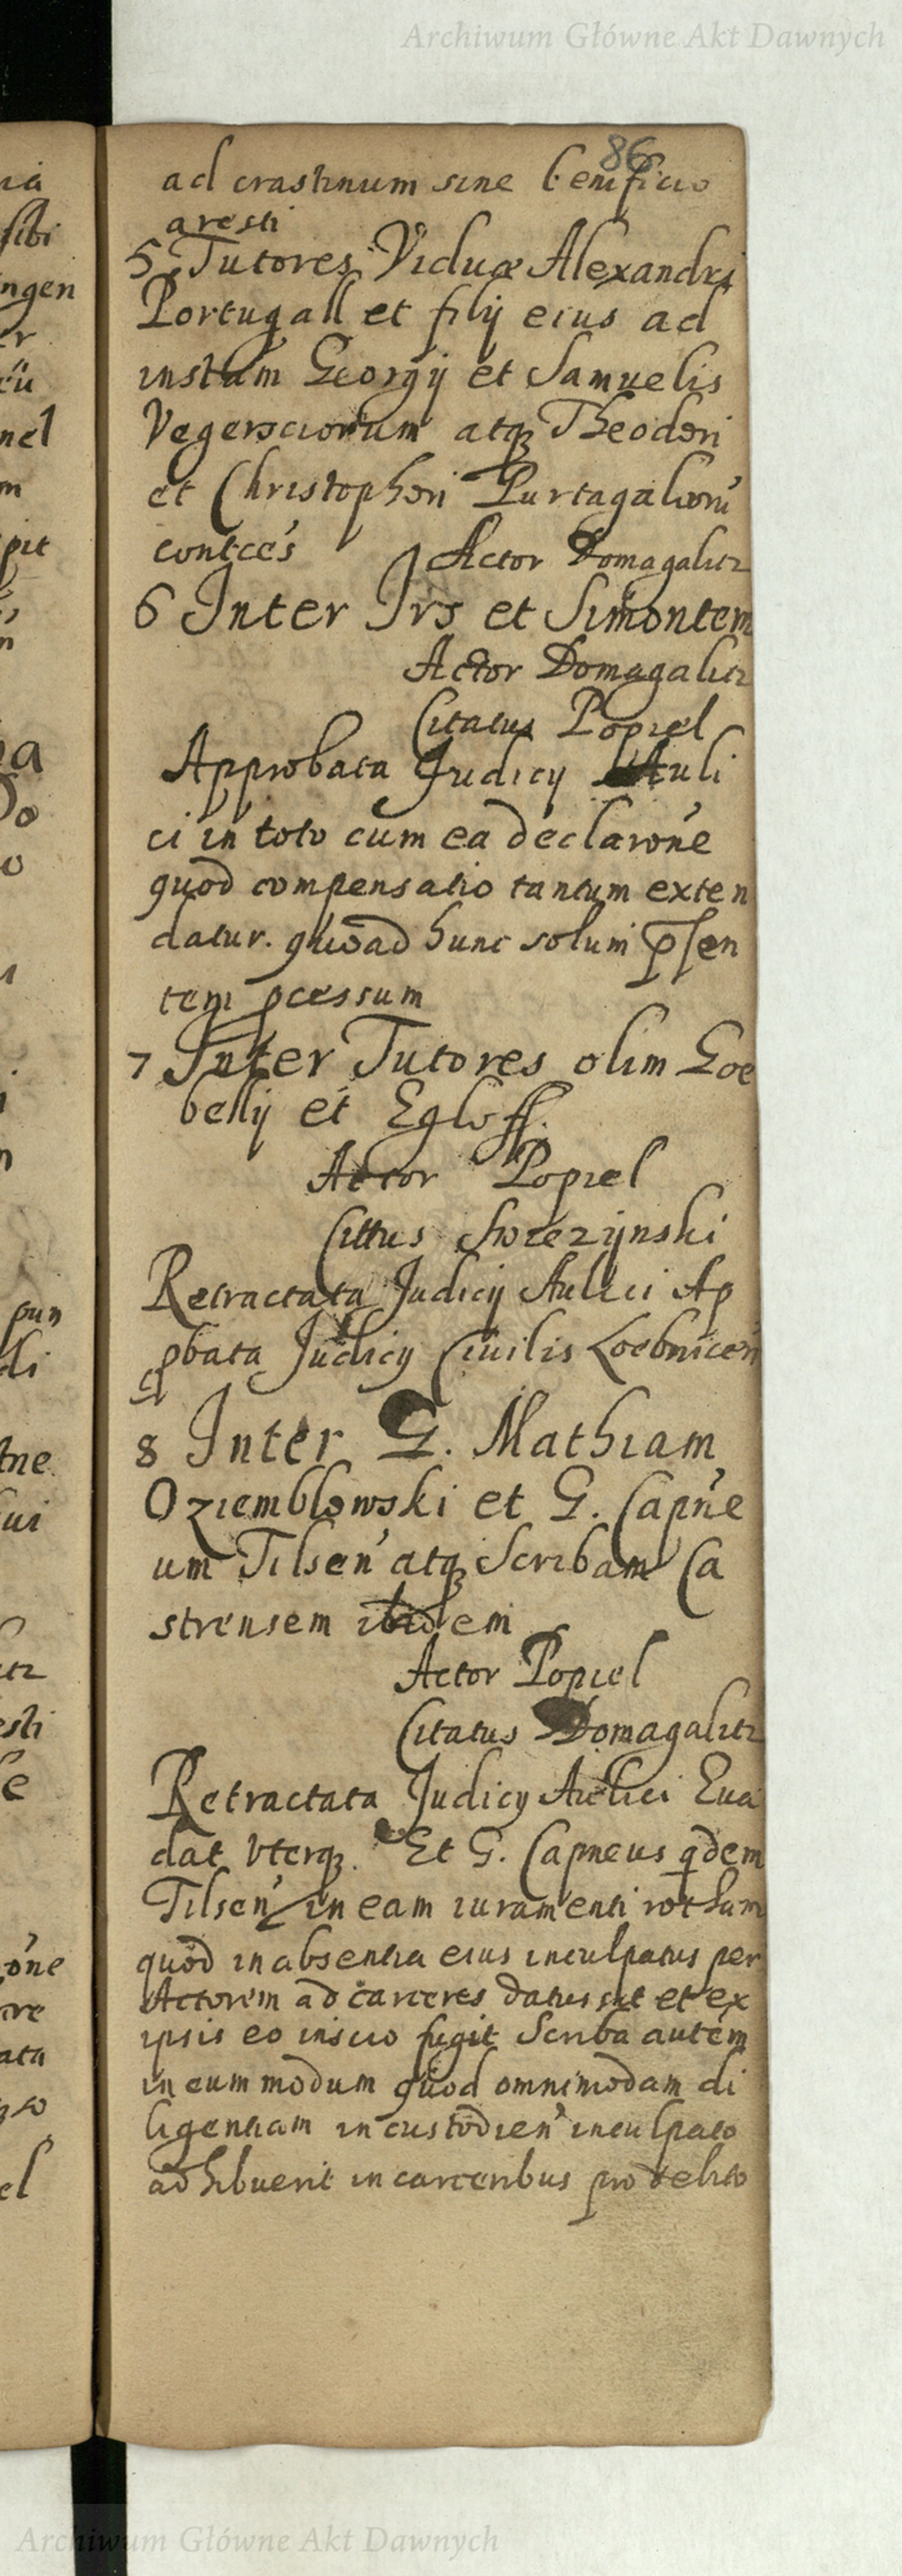 Archiwum Główne Akt Dawnych
86
ad crastinum sine benificio
aresti
5 Tutores Viduæ Alexandri
Portugall et filij eius ad
instam Georgij et Samuelis
atqꝫ Theodori
et Christophori
contces Actor Domagalicz
6 Inter Jrs et Simontem
Actor Domagalicz
Citatus Popiel
Approbata Judicij Auli
ci in toto cum ea declarone
quod compensatio tantum exten
datur. quoad hunc solum p̱sen
tem pcessum
7 Inter Tutores olim Goe
belij et Egloff.
Actor Popiel
Cittus
Retractata Judicij Aulici Ap
pbata Judicij Ciuilis Loebnicen
8 Inter G. Mathiam
Oziemblowski et G. Capne
um Tilsen' atqꝫ Scribam Ca
strensem ibidem
Actor Popiel
Citatus Domagalicz
Retractata Judicij Aulici Eua
dat vterqꝫ. Et G. Capneus qdem
Tilsen' in eam iuramenti rotham
quod in absentia eius inculpatus per
Actorem ad carceres datus sit et ex
ipsis eo inscio fugit Scriba autem
in eum modum quod omnimodam di
ligentiam in custodien' inculpato
adhibuerit in carceribus pro debito
Archiwum Główne Akt Dawnych